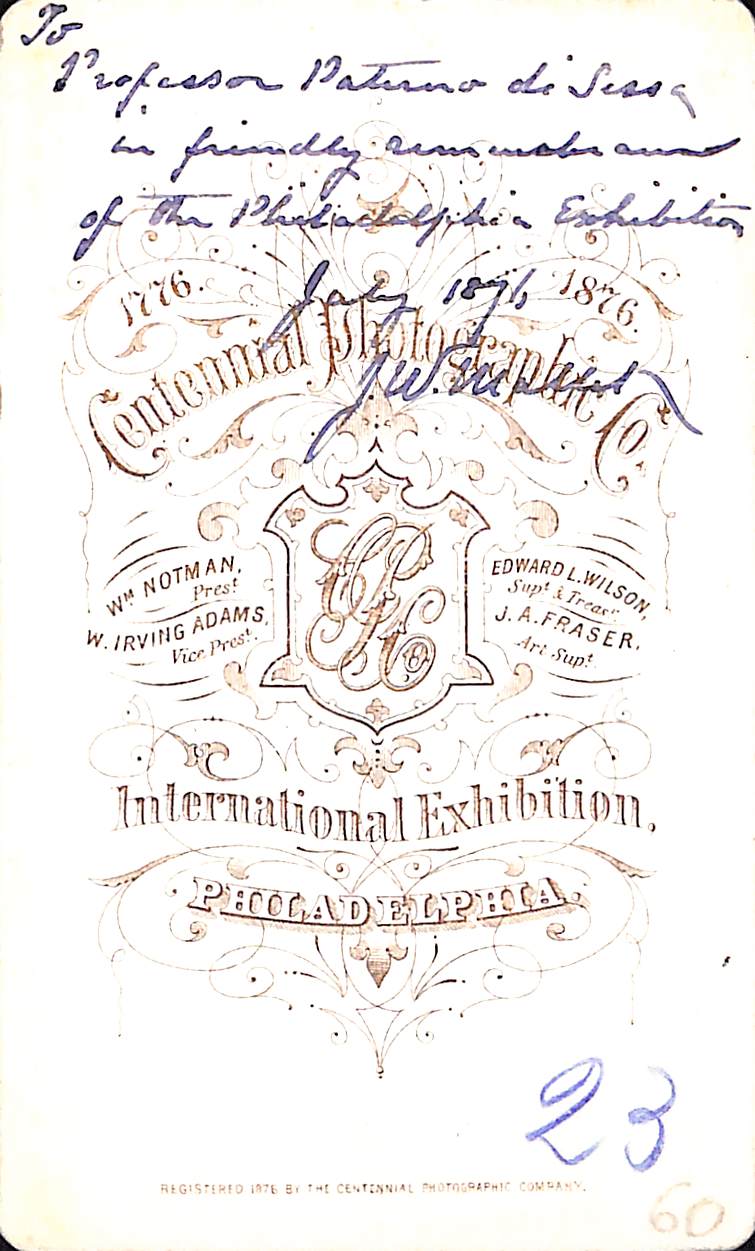 To
Professor Paterno di Sessa
in friendly remembrance
of the Philadelphia Exhibition
July 1876
J. W.
1776. 1876.
Centennial Photographic Co.
CPCo
Wm NOTMAN,
Prest
W. IRVING ADAMS,
Vice Prest.
EDWARD L. WILSON,
Supt & Treasr
J. A. FRASER,
Art Supt.
International Exhibition.
PHILADELPHIA.
23
REGISTERED 1876 BY THE CENTENNIAL PHOTOGRAPHIC COMPANY.
60